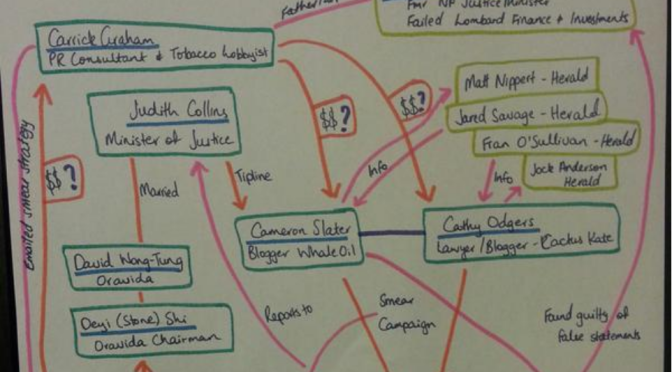 Father
Fmr NP Justice Minister
Failed Lombard Finance & Investments
Carrick Graham
PR Consultant & Tobacco Lobbyist
Matt Nippert - Herald
Jared Savage - Herald
Fran O'Sullivan - Herald
Jock Anderson
Herald
$$?
$$?
Judith Collins
Minister of Justice
Info
Info
Emailed smear strategy
$$?
Married
Tipline
Cameron Slater
Blogger Whale O.1
Cathy Odgers
Lawyer/Blogger - Cactus Kate
David Wong-Tung
Oravida
Deyi (Stone) Shi
Oravida Chairman
Reports to
Smear
Campaign
Found guilty of
false statements